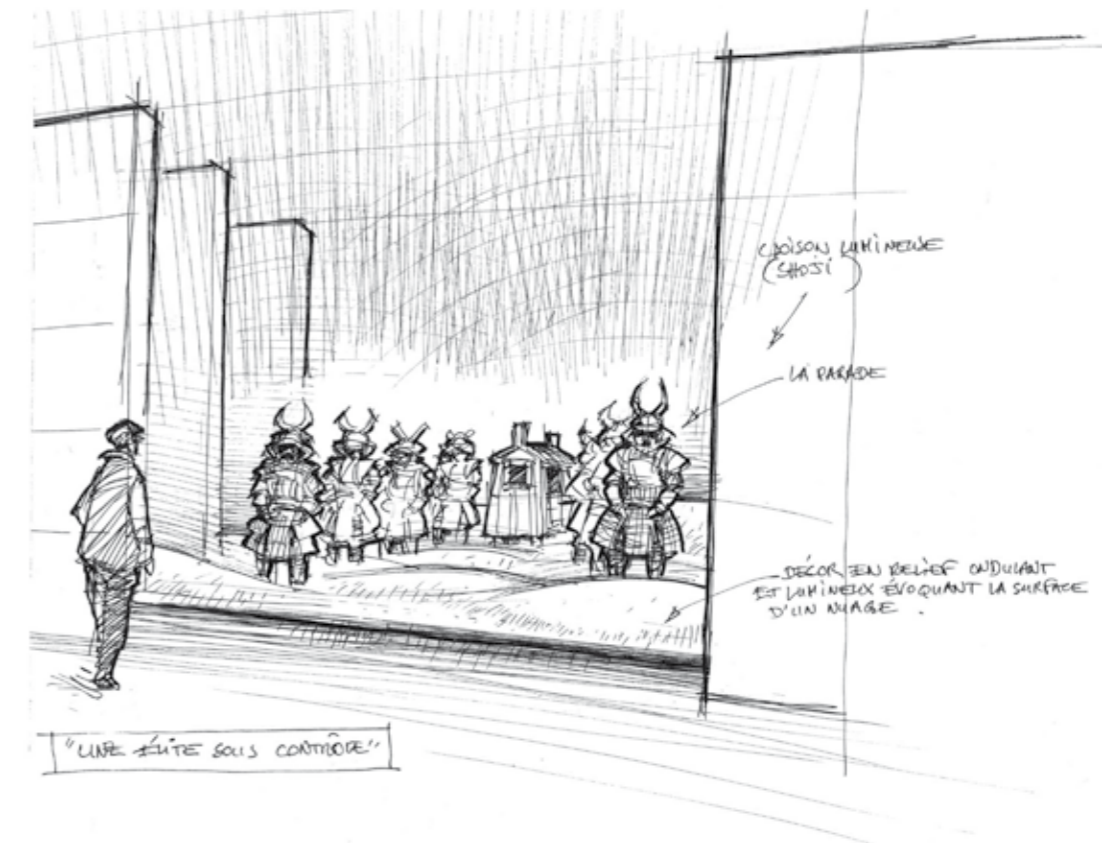 CLOISON LUMINEUSE
(SHOJI)
LA PARADE
DÉCOR EN RELIEF ONDULANT
ET LUMINEUX ÉVOQUANT LA SURFACE
D'UN NUAGE.
"UNE ÉLITE SOUS CONTRÔLE"